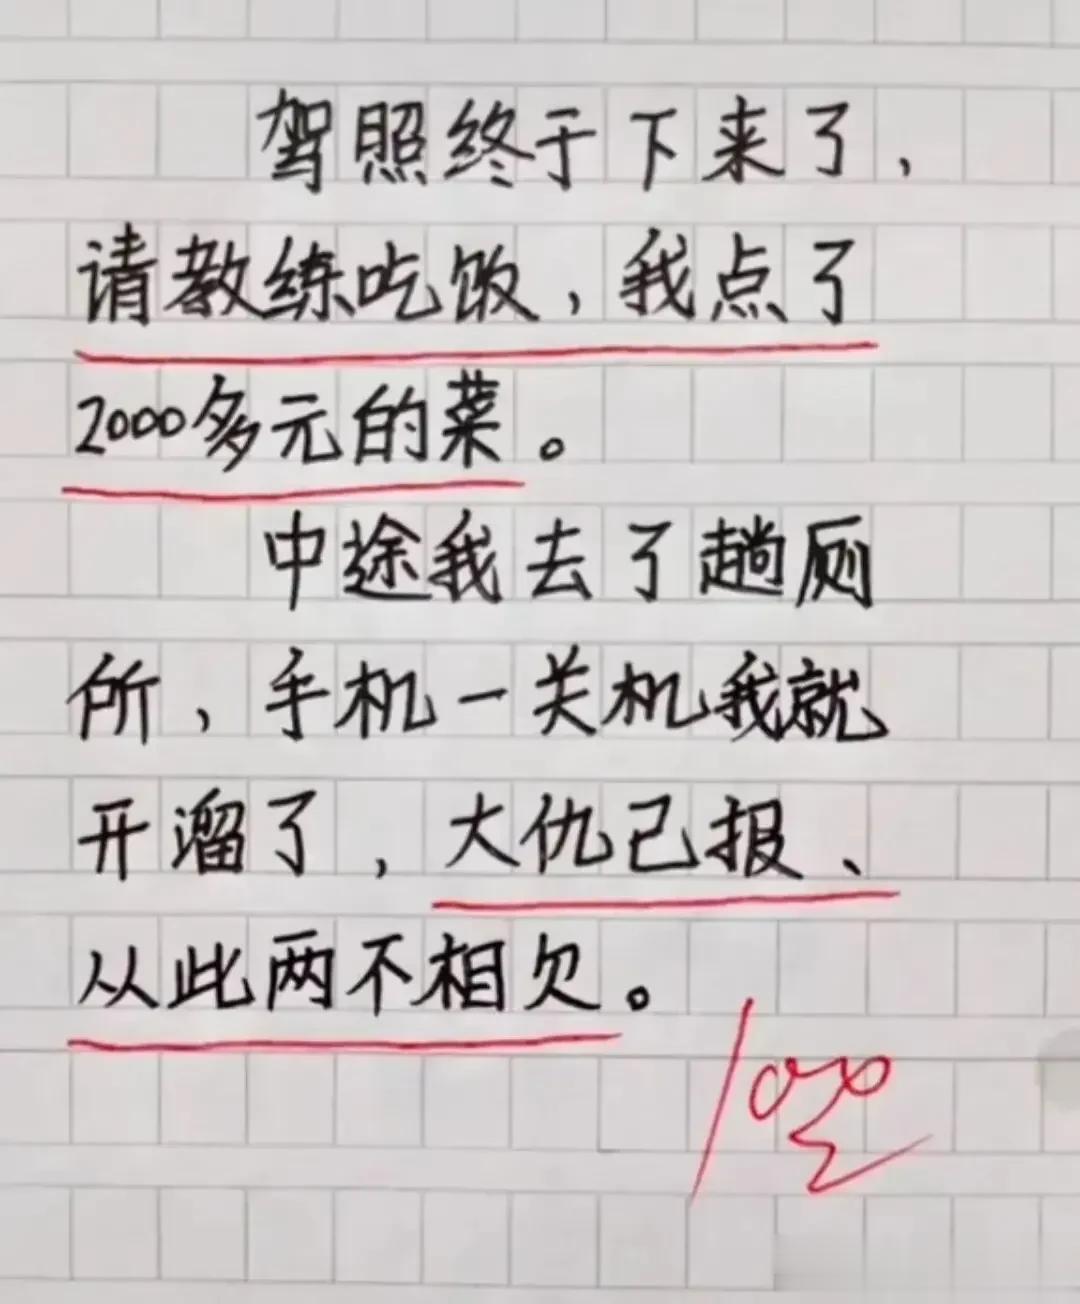 驾照终于下来了，
请教练吃饭，我点了
2000多元的菜。
中途我去了趟厕
所，手机一关机我就
开溜了，大仇己报、
从此两不相欠。
100